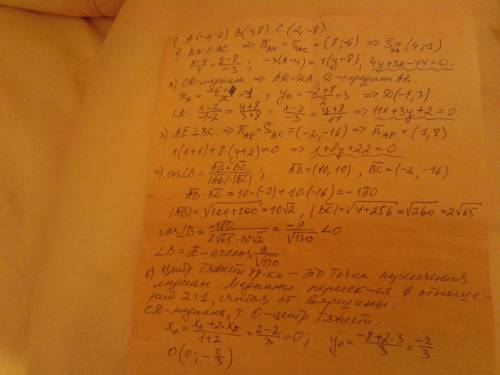 1) A(-6,-2) B(4,8) C(2,-8).
1) BN∥AC ⇒ S̄_BN = S̄_AC = (8;-6) ⇒ S̄ = (4;-3)
(x-4)/4 = (y-8)/-3; -3(x-4) = 4(y-8), 4y+3x-44=0.
2) CD-медиана ⇒ AD=DB, D-середина AB
x₀ = (-6+4)/2 = -1, y₀ = (-2+8)/2 = 3 ⇒ D(-1,3)
CD: (x-2)/(-1-2) = (y+8)/(3+8); (x-2)/-3 = (y+8)/11 ⇒ 11x+3y+2=0
3) AE⊥BC ⇒ n̄_AE = S̄_BC = (-2,-16) ⇒ n̄_AE = (1,8)
1(x+6)+8(y+2)=0 ⇒ x+8y+22=0.
4) cos∠B = (AB·BC)/(|AB|·|BC|); AB = (10,10), BC = (-2,-16)
AB·BC = 10·(-2)+10·(-16) = -180
|AB| = √(100+100) = 10√2, |BC| = √(4+256) = √260 = 2√65
cos∠B = -180/(2√65·10√2) = -9/√130 <0
∠B = π - arccos 9/√130
5) Центр тяжести тр-ка - это точка пересечения
медиан. Медианы пересек-ся в отноше-
нии 2:1, считая от вершины:
CD-медиана, т. O-центр тяжести.
x₀ = (x_c+2·x_D)/(1+2) = (2-2)/3 = 0, y₀ = (-8+2·3)/3 = -2/3
O(0;-2/3)